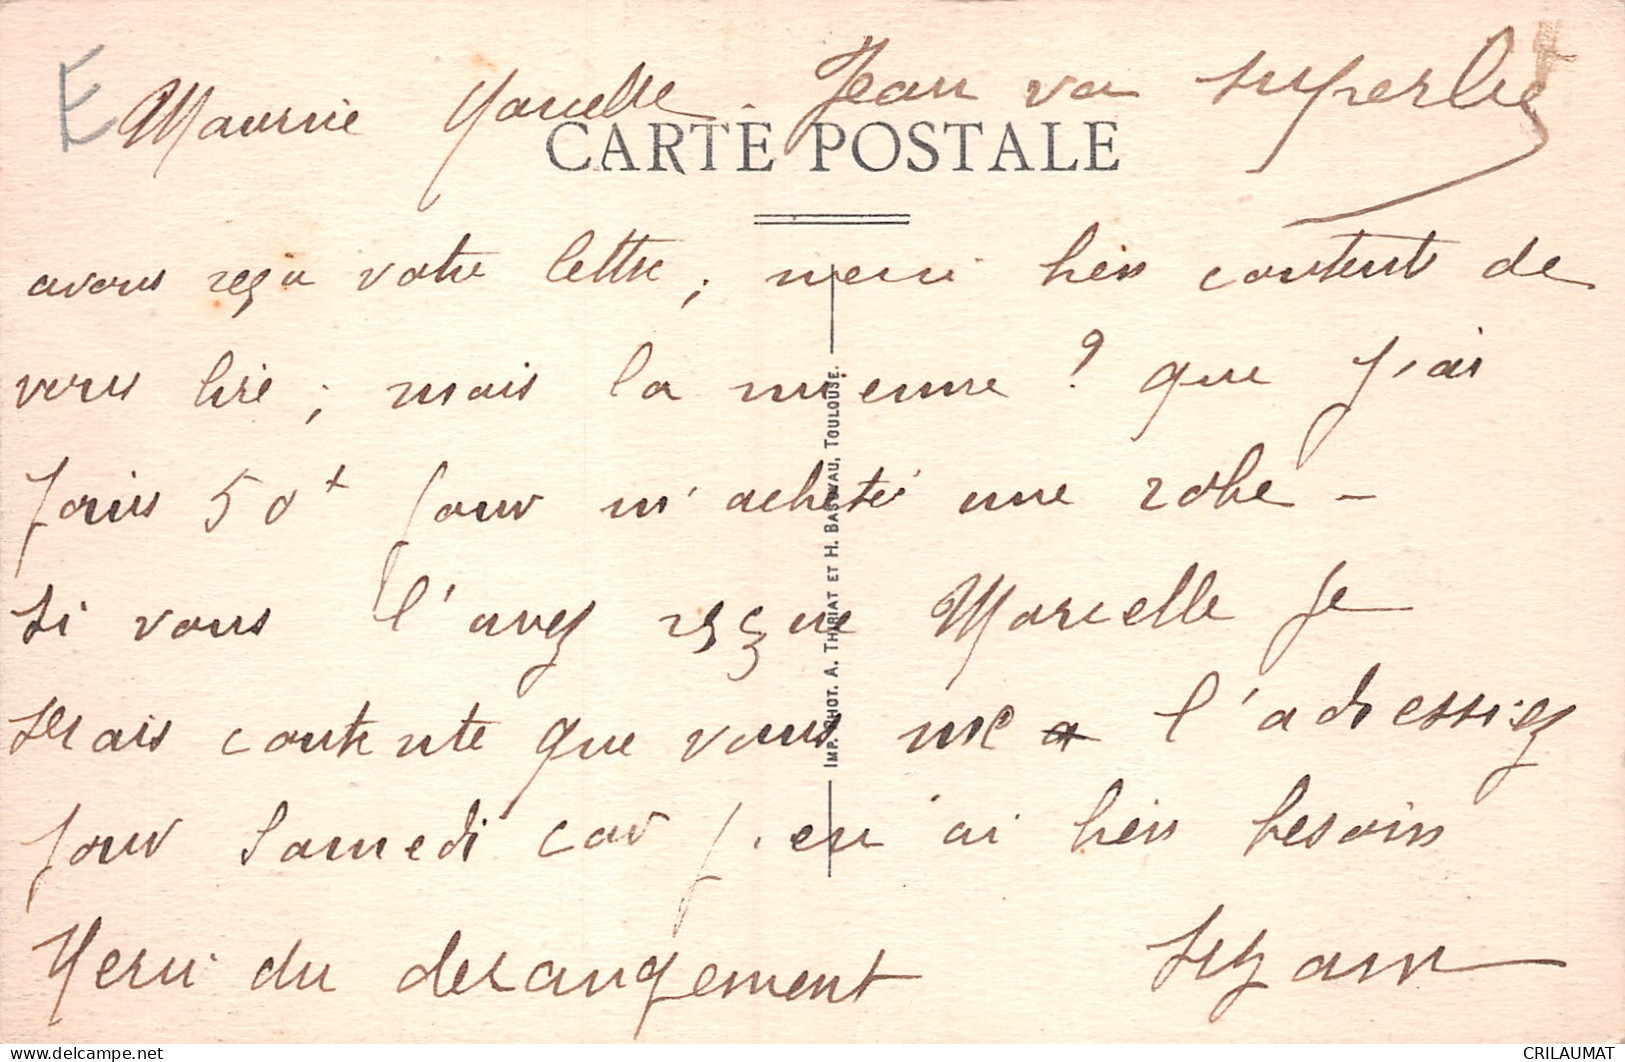 E
Maurice Marcelle. Jean va superbe
CARTE POSTALE
avons reçu votre lettre, merci bien content de
vous lire ; mais la mienne ? que j'ai
fais 50f pour m'acheté une robe -
Si vous l'avez reçue Marcelle je
serais contente que vous me l'adressiez
pour Samedi car j'en ai bien besoin
Merci du derangement Suzanne
IMP. PHOT. A. THIRIAT ET H. BASUYAU, TOULOUSE.
CRILAUMAT